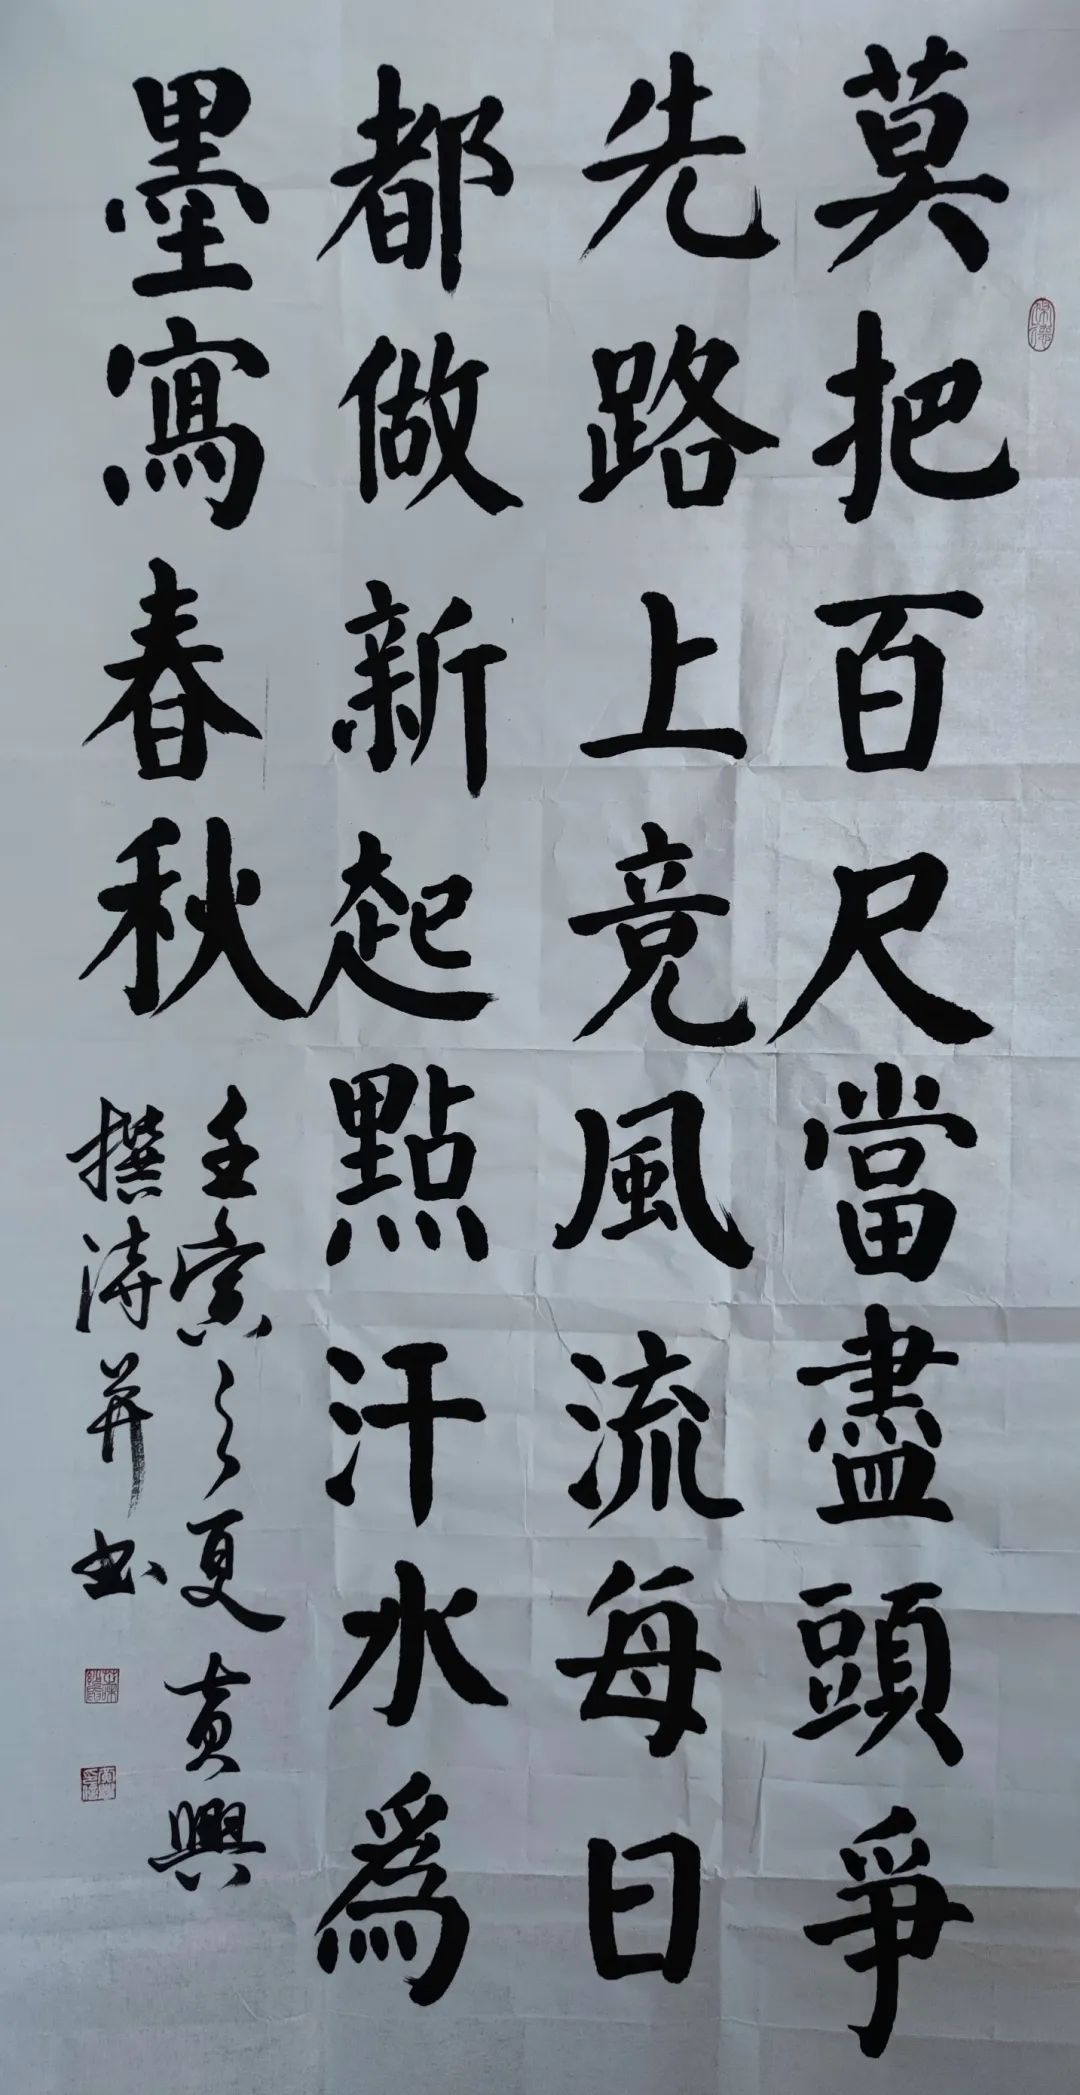 莫把百尺當盡頭爭
先路上竞風流每日
都做新起點汗水爲
墨寫春秋
壬寅之夏黄興
撰涛并书